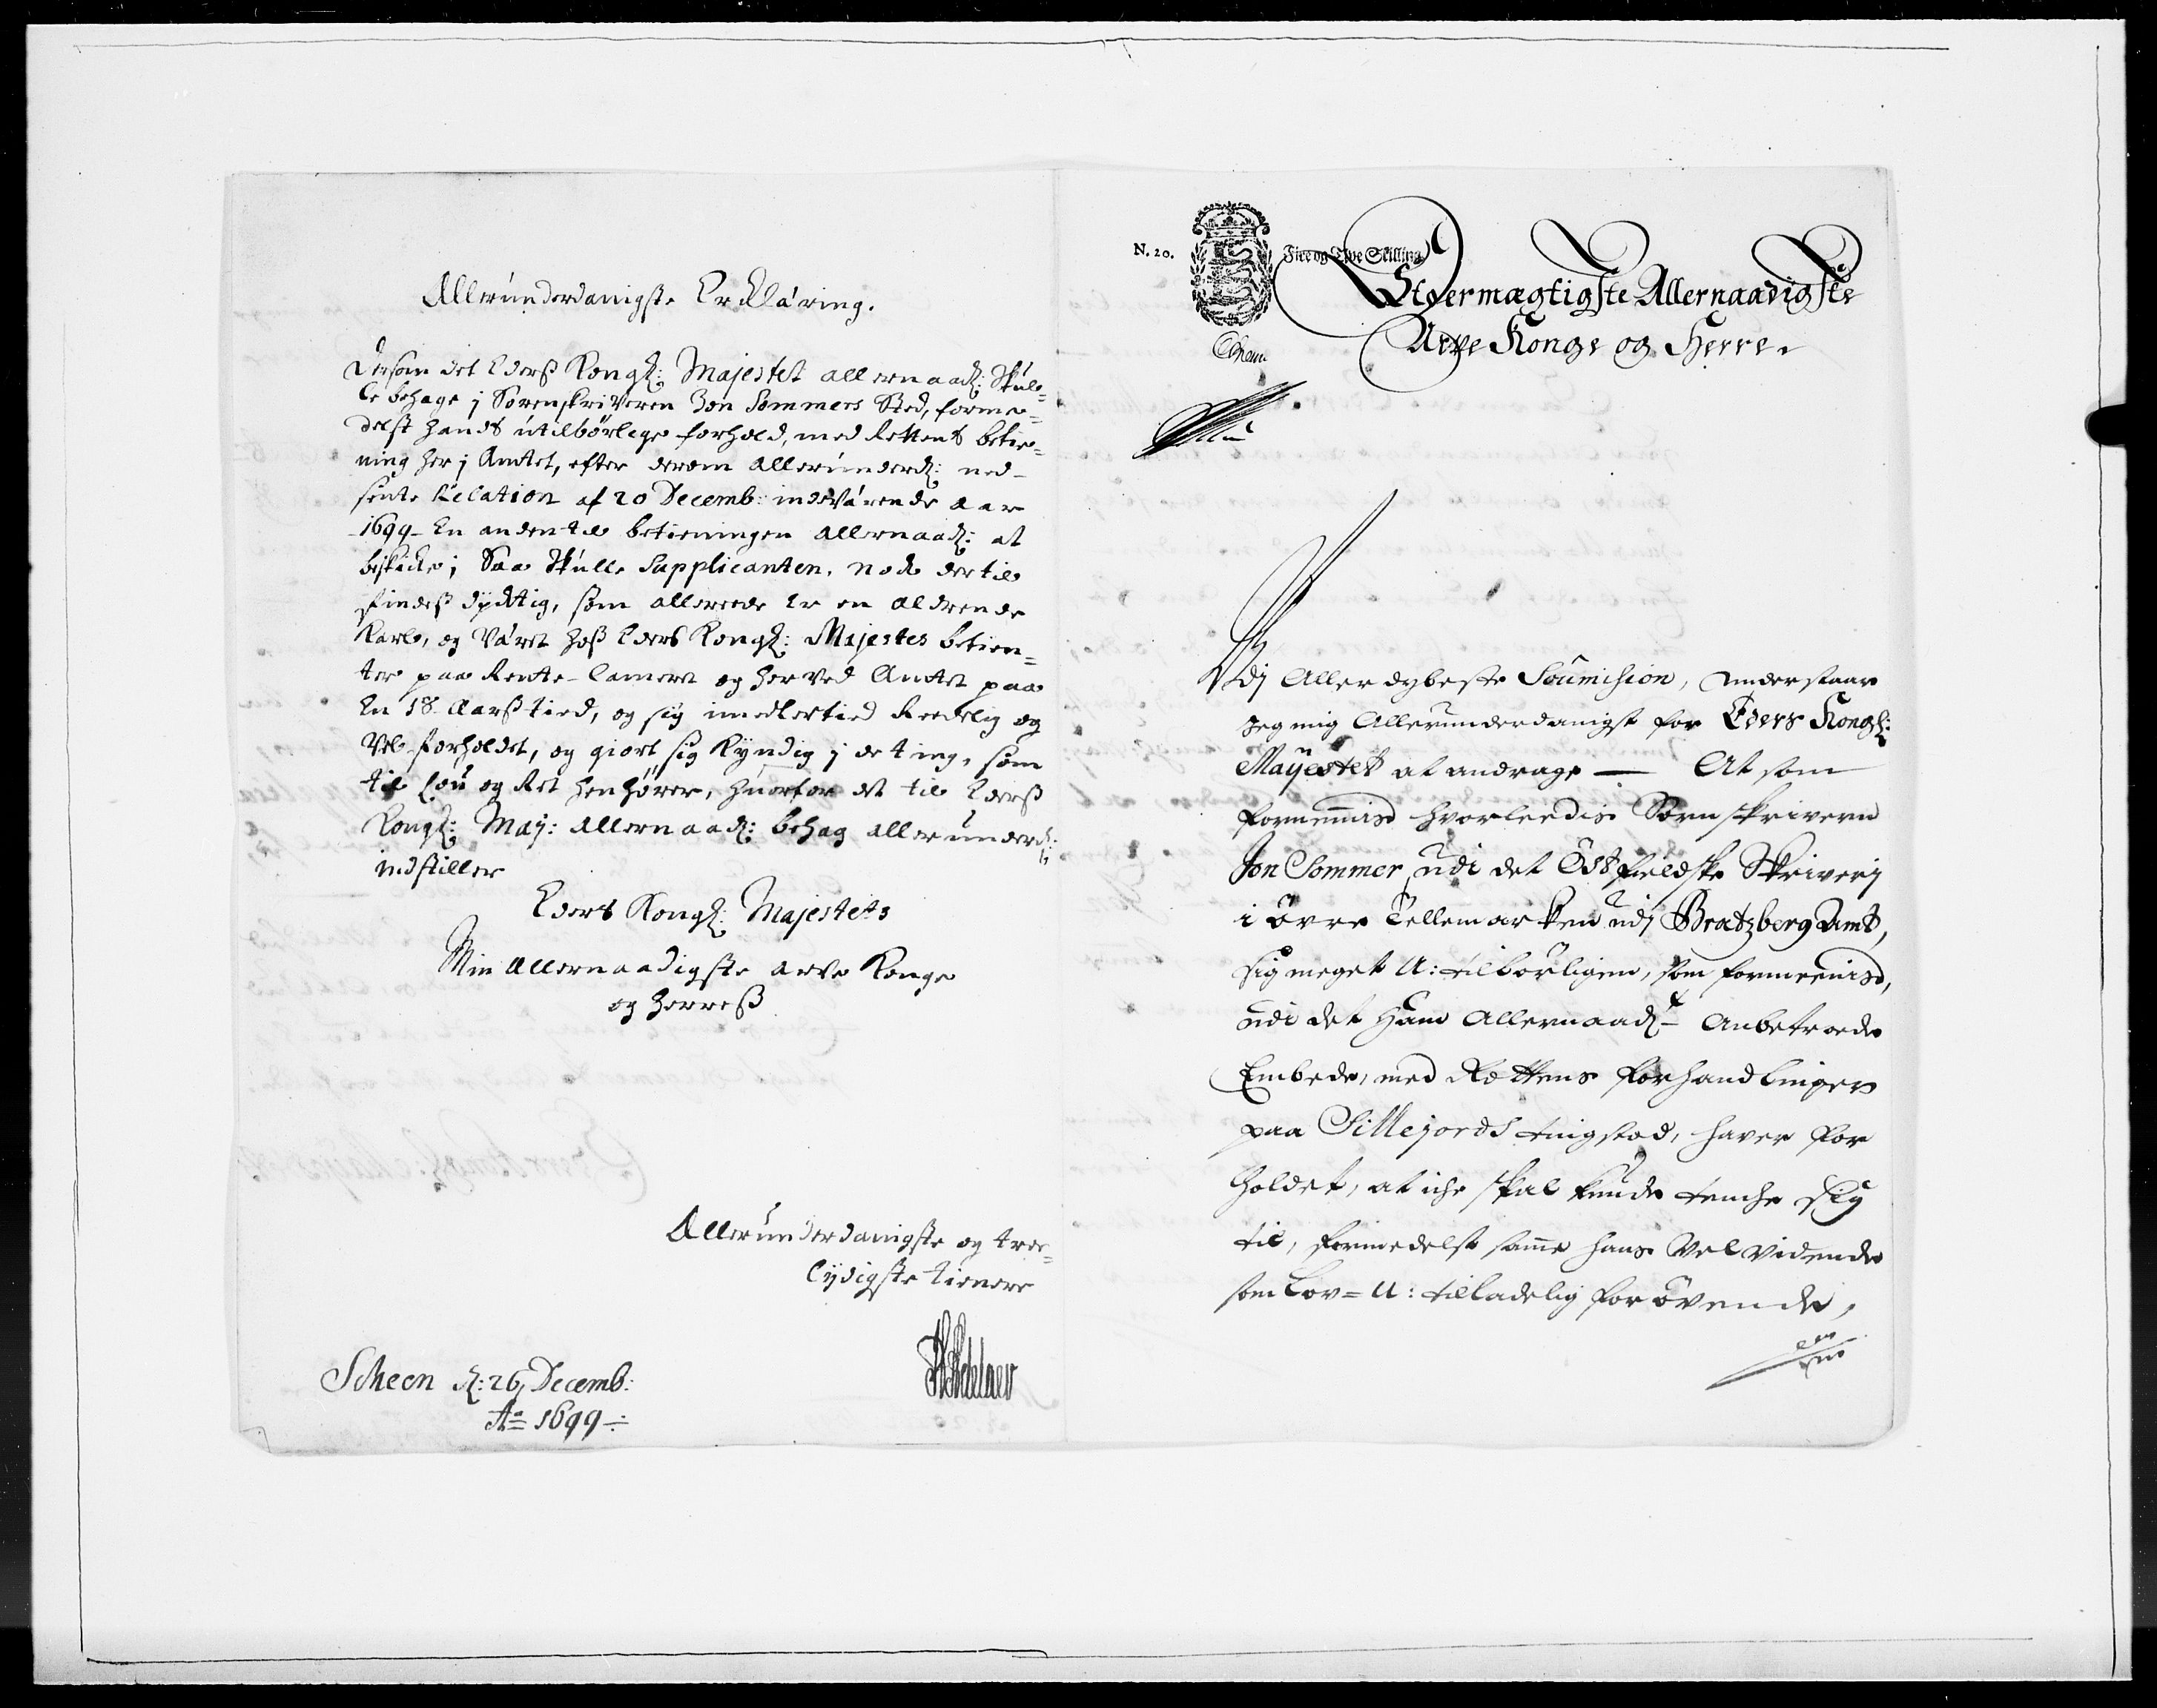 Allerunderdanigste Erklæring.
Dersom det Eders Kongl: Majestet allernaadl: Skul=
le behage j Sorenskriveren Jon Sommers Sted, forme=
delst hands utilbørlige forhold, med Rettens betie=
ning her j Amtet, efter derom allerunderdl: ned-
sente Relation af 20 Decemb: indeværende aar
1699 En anden til betieningen allernaadl: at
beskicke; Saa skulle Supplicanten, nock dertil
findes dyctig, som allerede er en aldrende
Karl, og været hoß Eders Kongl: Majestes betien=
ter paa Rente-Cameret og her ved Amtet paa
En 18 Aarß tied, og sig imedlertied Reedelig og
vel forholdet, og giort sig Kyndig j de ting, som
til lou og Ret henhører, huorfor det til Eders
Kongl: May: allernaadl: behag allerunderdl:
indstiller
Eders Kongl: Majestets
Min Allernaadigste arve Konge
og Herreß
Allerunderdanigste og troe=
lydigste tienere
Scheen d: 26 Decemb:
Ao 1699
N. 20.
Fire og Tive Skilling
Stoermægtigste Allernaadigste
Arve Konge og Herre
Udj Allerdybeste Soumision, understaar
Jeg mig Allerunderdanigst for Eders Kongl:
Mayestet at andrage — At som
fornemmis hvorleedis Sornskrivern
Jon Sommer, udi det Østfieldske Skriverj
i Øvre Tellemarken udj Bratzberg Amt,
sig meget U:tilbørligen, som formeenis,
udi det ham Allernaadl: Anbetroede
Embede, med Rettens forhandlinger
paa Sillejords tingsted, haver for
holdet, at iche skal kunde tenche sig
til, formedelst samme hans Vel vidende
som lov= U:tilladelig forøvende,
en